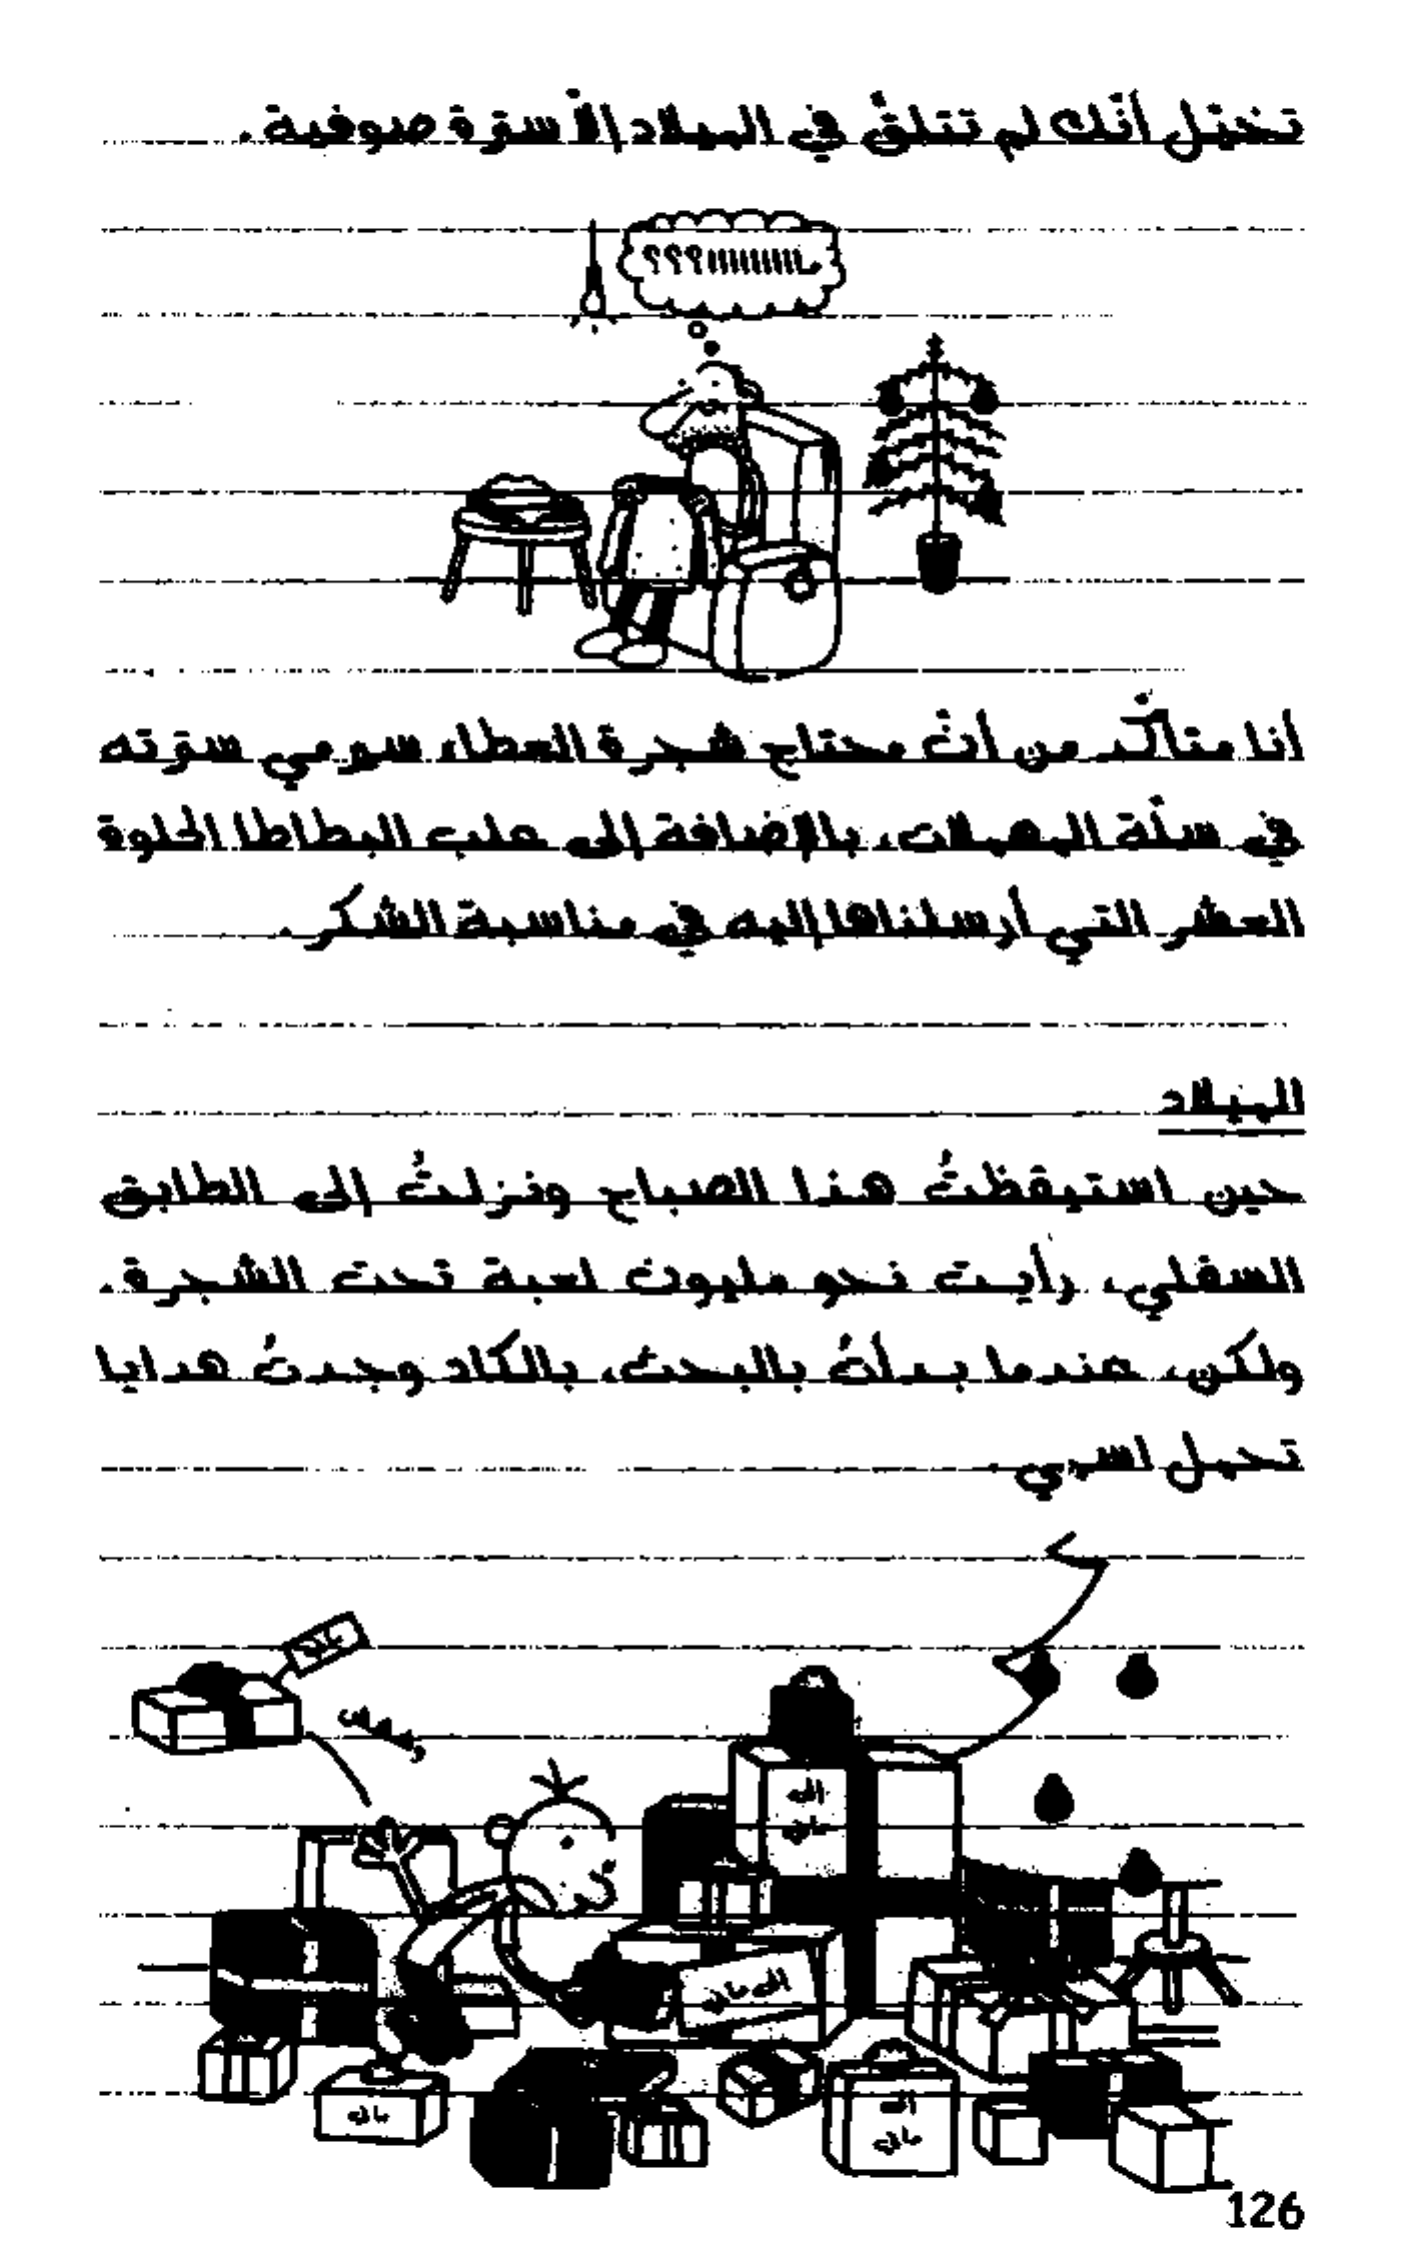 تخيّل أنّك لم تتلقّ في الميلاد إلّا سترة صوفية.
أنا متأكّد من أنّ محتاج شجرة العطاء سيرمي سترته
في سلّة المهملات، بالإضافة إلى علب البطاطا الحلوة
العشر التي أرسلناها إليه في مناسبة الشكر.
الميلاد
حين استيقظتُ هذا الصباح ونزلتُ إلى الطابق
السفلي، رأيت نحو مليون لعبة تحت الشجرة.
ولكن، عندما بدأتُ بالبحث، بالكاد وجدتُ هدايا
تحمل اسمي.
ماني
الى
ماني
الى ماني
ماني
الى
ماني
126